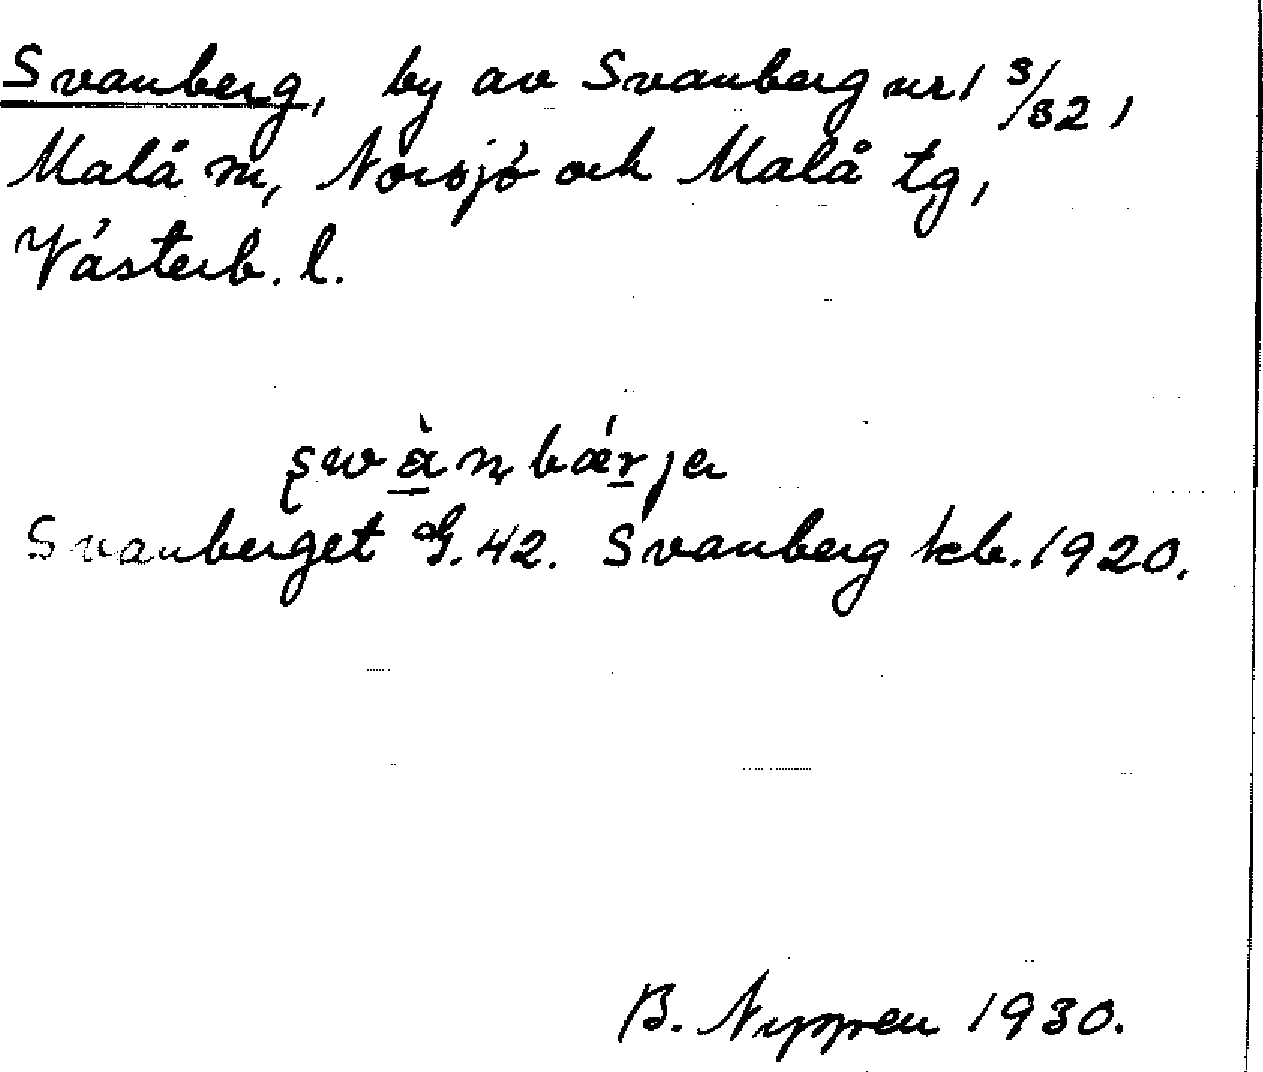 Svanberg, by av Svanberg nr 1 3/32,
Malå sn, Norsjö och Malå tg,
Västerb. l.
swànbǽrjа
Svanberget G. 42. Svanberg kb. 1920.
B. Nyppen 1930.